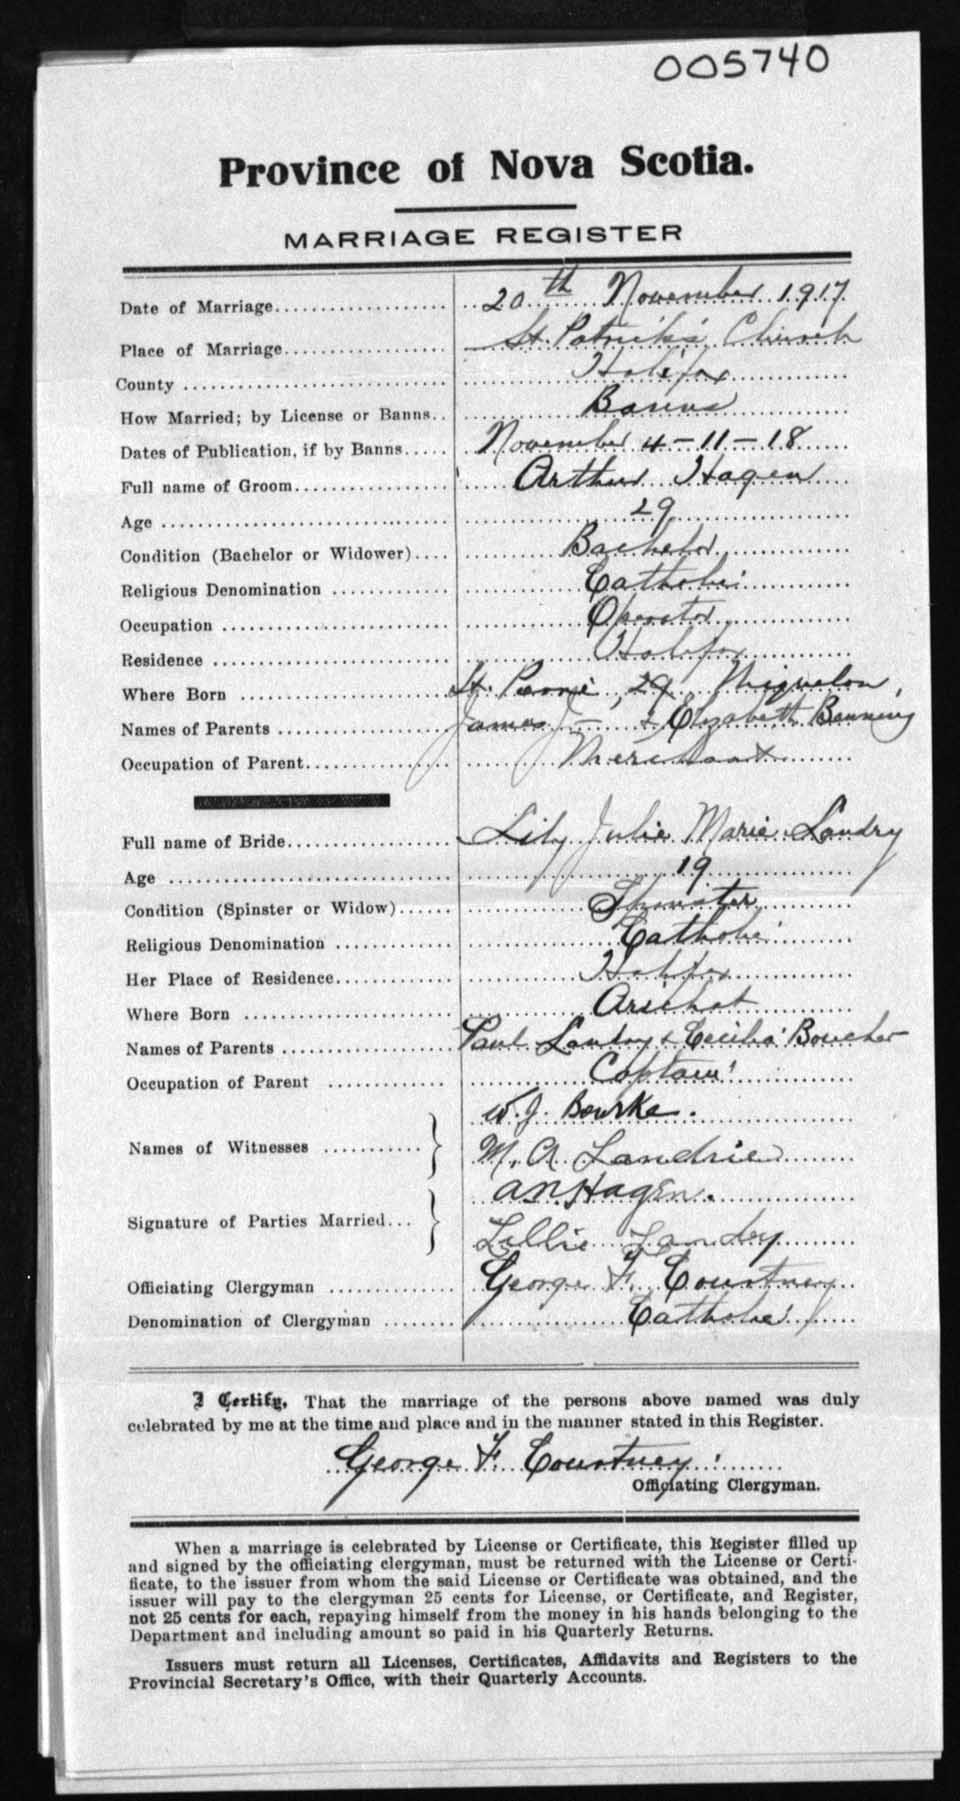 005740
Province of Nova Scotia.
MARRIAGE REGISTER
Date of Marriage.................... 20th November 1917
Place of Marriage.................. St. Patrick's Church
County ............................. Halifax
How Married; by License or Banns.. Banns
Dates of Publication, if by Banns..... November 4-11-18
Full name of Groom................. Arthur Hagen
Age ............................... 29
Condition (Bachelor or Widower).... Bachelor
Religious Denomination ............ Catholic
Occupation ........................ Operator
Residence ......................... Halifax
Where Born ........................ St. Pierre, Miquelon
Names of Parents .................. James J - & Elizabeth Banning
Occupation of Parent............... Merchant
Full name of Bride................. Lily Julie Marie Landry
Age ............................... 19
Condition (Spinster or Widow)...... Spinster
Religious Denomination ............ Catholic
Her Place of Residence............. Halifax
Where Born ........................ Arichat
Names of Parents .................. Paul Landry & Cecilia Boucher
Occupation of Parent .............. Captain
W. J. Bourke.
Names of Witnesses ............
M. A Landrie
A N Hagen.
Signature of Parties Married...
Lillie Landry
Officiating Clergyman ............. George F. Courtney
Denomination of Clergyman ........ Catholic
I Certify, That the marriage of the persons above named was duly
celebrated by me at the time and place and in the manner stated in this Register.
George F. Courtney
Officiating Clergyman.
When a marriage is celebrated by License or Certificate, this Register filled up
and signed by the officiating clergyman, must be returned with the License or Certi-
ficate, to the issuer from whom the said License or Certificate was obtained, and the
issuer will pay to the clergyman 25 cents for License, or Certificate, and Register,
not 25 cents for each, repaying himself from the money in his hands belonging to the
Department and including amount so paid in his Quarterly Returns.
Issuers must return all Licenses, Certificates, Affidavits and Registers to the
Provincial Secretary's Office, with their Quarterly Accounts.